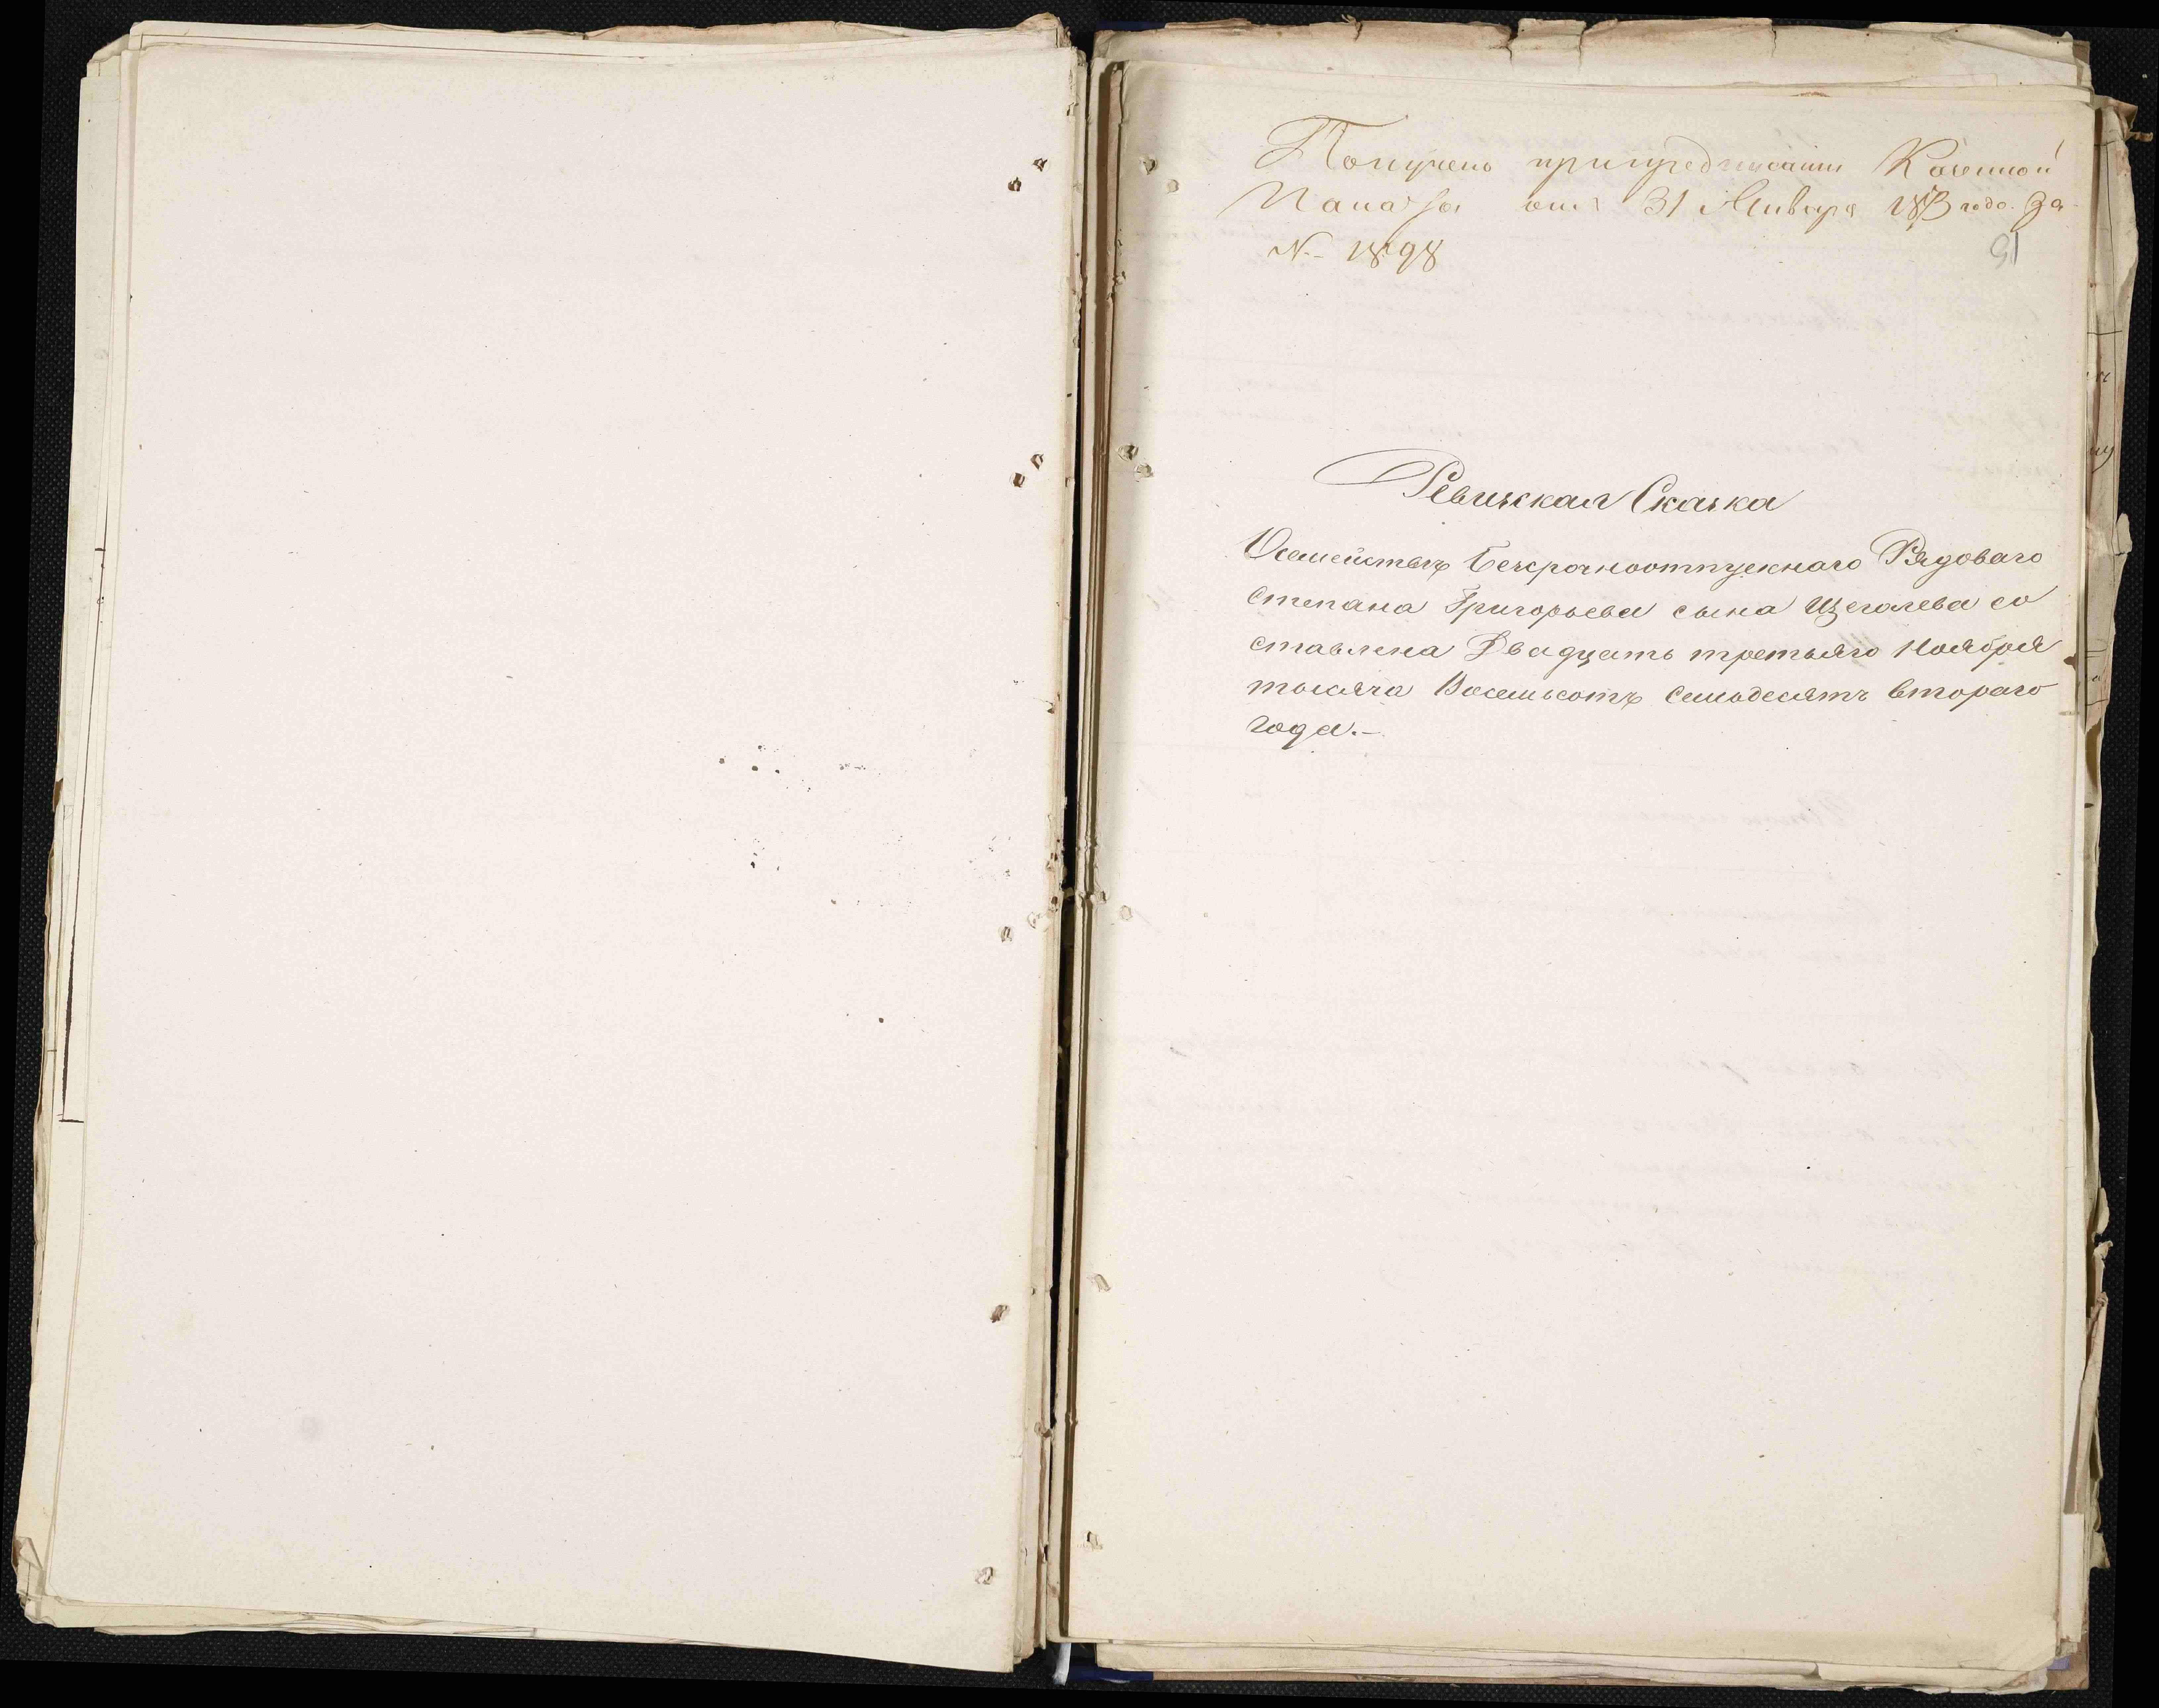 Получено при предписании Казенной
Палаты отъ 31 Января 1873 года за
№ 1898
91
Ревизская Сказка
О семействѣ безсрочноотпускнаго Рядоваго
Степана Григорьева сына Щеголева со
ставлена Двадцать третьяго Ноября
тысяча Восемьсотъ Семьдесятъ втораго
года.–